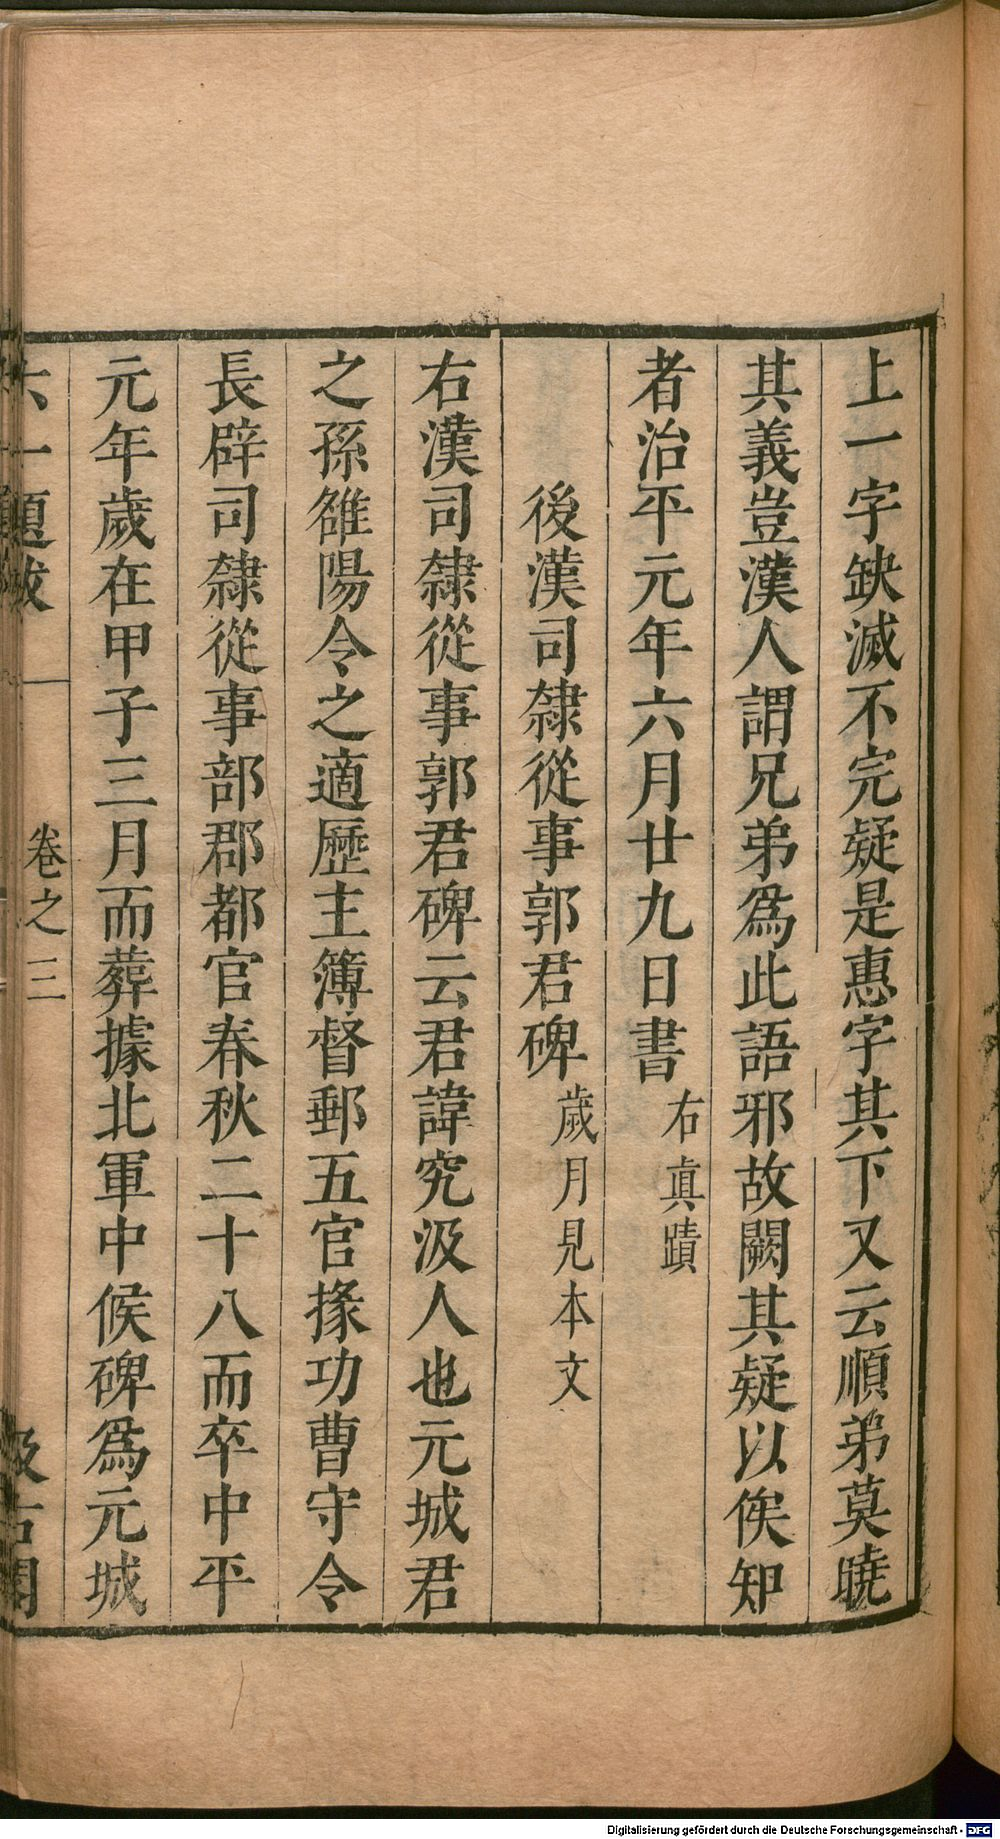 上一字缺滅不完疑是惠字其下又云順弟莫曉
其義豈漢人謂兄弟爲此語邪故闕其疑以俟知
者治平元年六月廿九日書右眞蹟
後漢司隸從事郭君碑歲月見本文
右漢司隸從事郭君碑云君諱究汲人也元城君
之孫雒陽令之適歷主簿督郵五官掾功曹守令
長辟司隸從事部郡都官春秋二十八而卒中平
元年歲在甲子三月而葬據北軍中候碑爲元城
六一題跋 卷之三 汲古閣
Digitalisierung gefördert durch die Deutsche Forschungsgemeinschaft - DFG